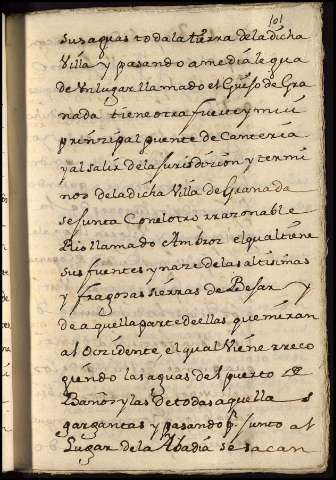 101
sus aguas toda la tierra de la dicha
Villa y pasando a media legua
de Un lugar llamado el Guijo de Gra
nada tiene otra fuerte y mui
prinzipal puente de Canteria
y al salir de la Jurisdizion y termi
nos de la dicha Villa de Granada
se junta Con el otro rrazonable
Rio llamado Ambroz el qual tiene
sus fuentes y naze de las altisimas
y fragosas sierras de Bejar y
de aquella parte de ellas que miran
al Occidente, el qual Viene rreco
giendo las aguas del puerto de
Baños y las de todas aquellas
gargantas y pasando por Junto al
Lugar de la Abadia se sacan